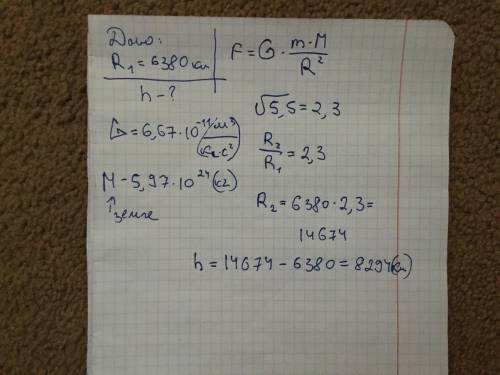 Дано:
R₁ = 6380 км
h - ?
G = 6,67·10⁻¹¹ (м³/кг·с²)
M - 5,97·10²⁴ (кг)
↑ земле
F = G · m·M/R²
√5,5 = 2,3
R₂/R₁ = 2,3
R₂ = 6380·2,3 =
14674
h = 14674 - 6380 = 8294 (км)